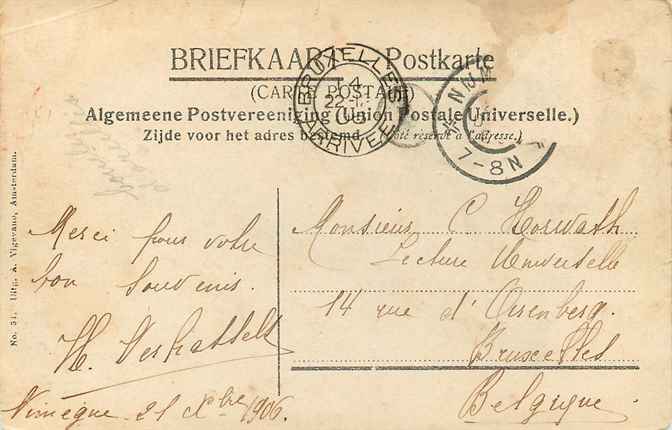 BRIEFKAART. Postkarte
(CARTE POSTALE)
Algemeene Postvereeniging (Union Postale Universelle.)
Zijde voor het adres bestemd. (Côté réservé à l'adresse.)
BRUXELLES
14
22-
ARRIVEE
7-8N
No. 51. Uitg. A. Vigevano, Amsterdam.
Merci pour votre
bon souvenir.
H.
Nimègue 21 Xbre 1906.
Monsieur C. Horwath
Lecture Universelle
14 rue d'Arenberg.
Bruxelles
Belgique.